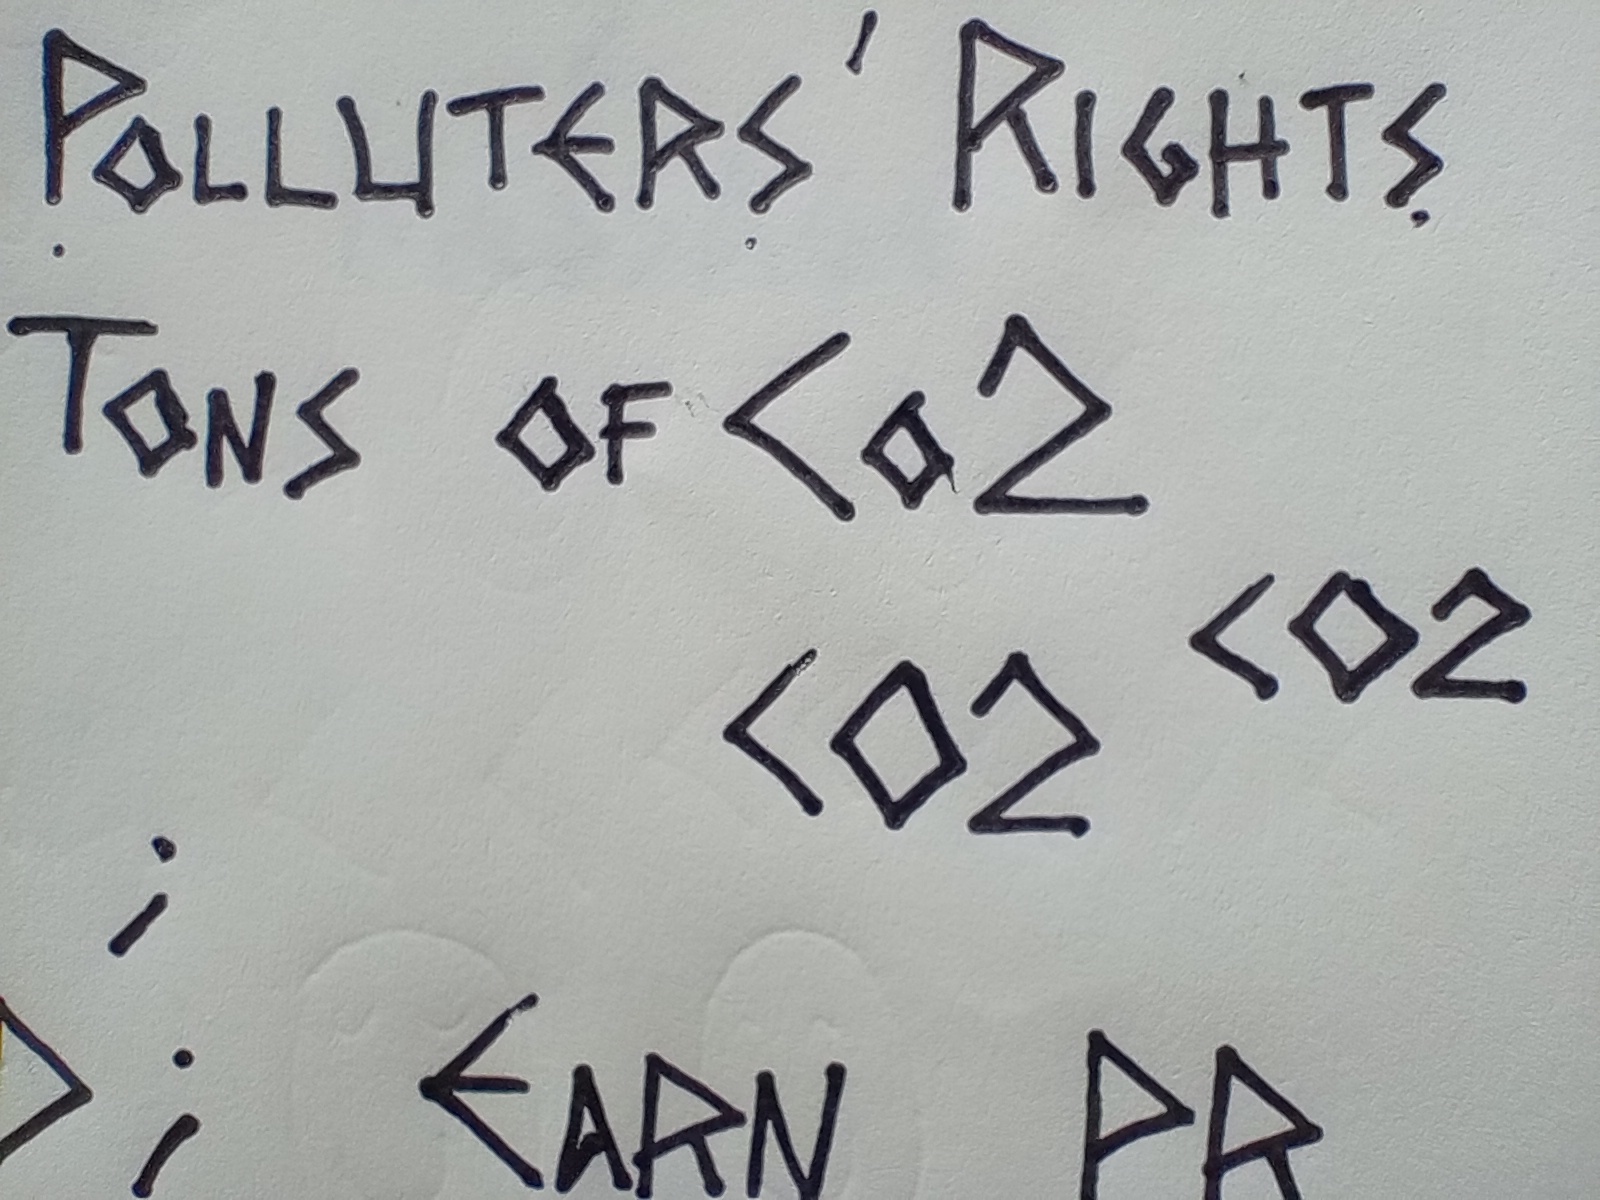 POLLUTERS' RIGHTS
TONS OF CO2
CO2 CO2
EARN PR